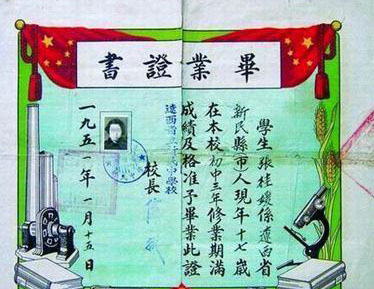 畢業證書
學生張桂媛係遼西省
新民縣市人現年十七歲
在本校初中三年修業期滿
成績及格准予畢業此證
遼西省 中學校
校長
一九五一年一月十五日